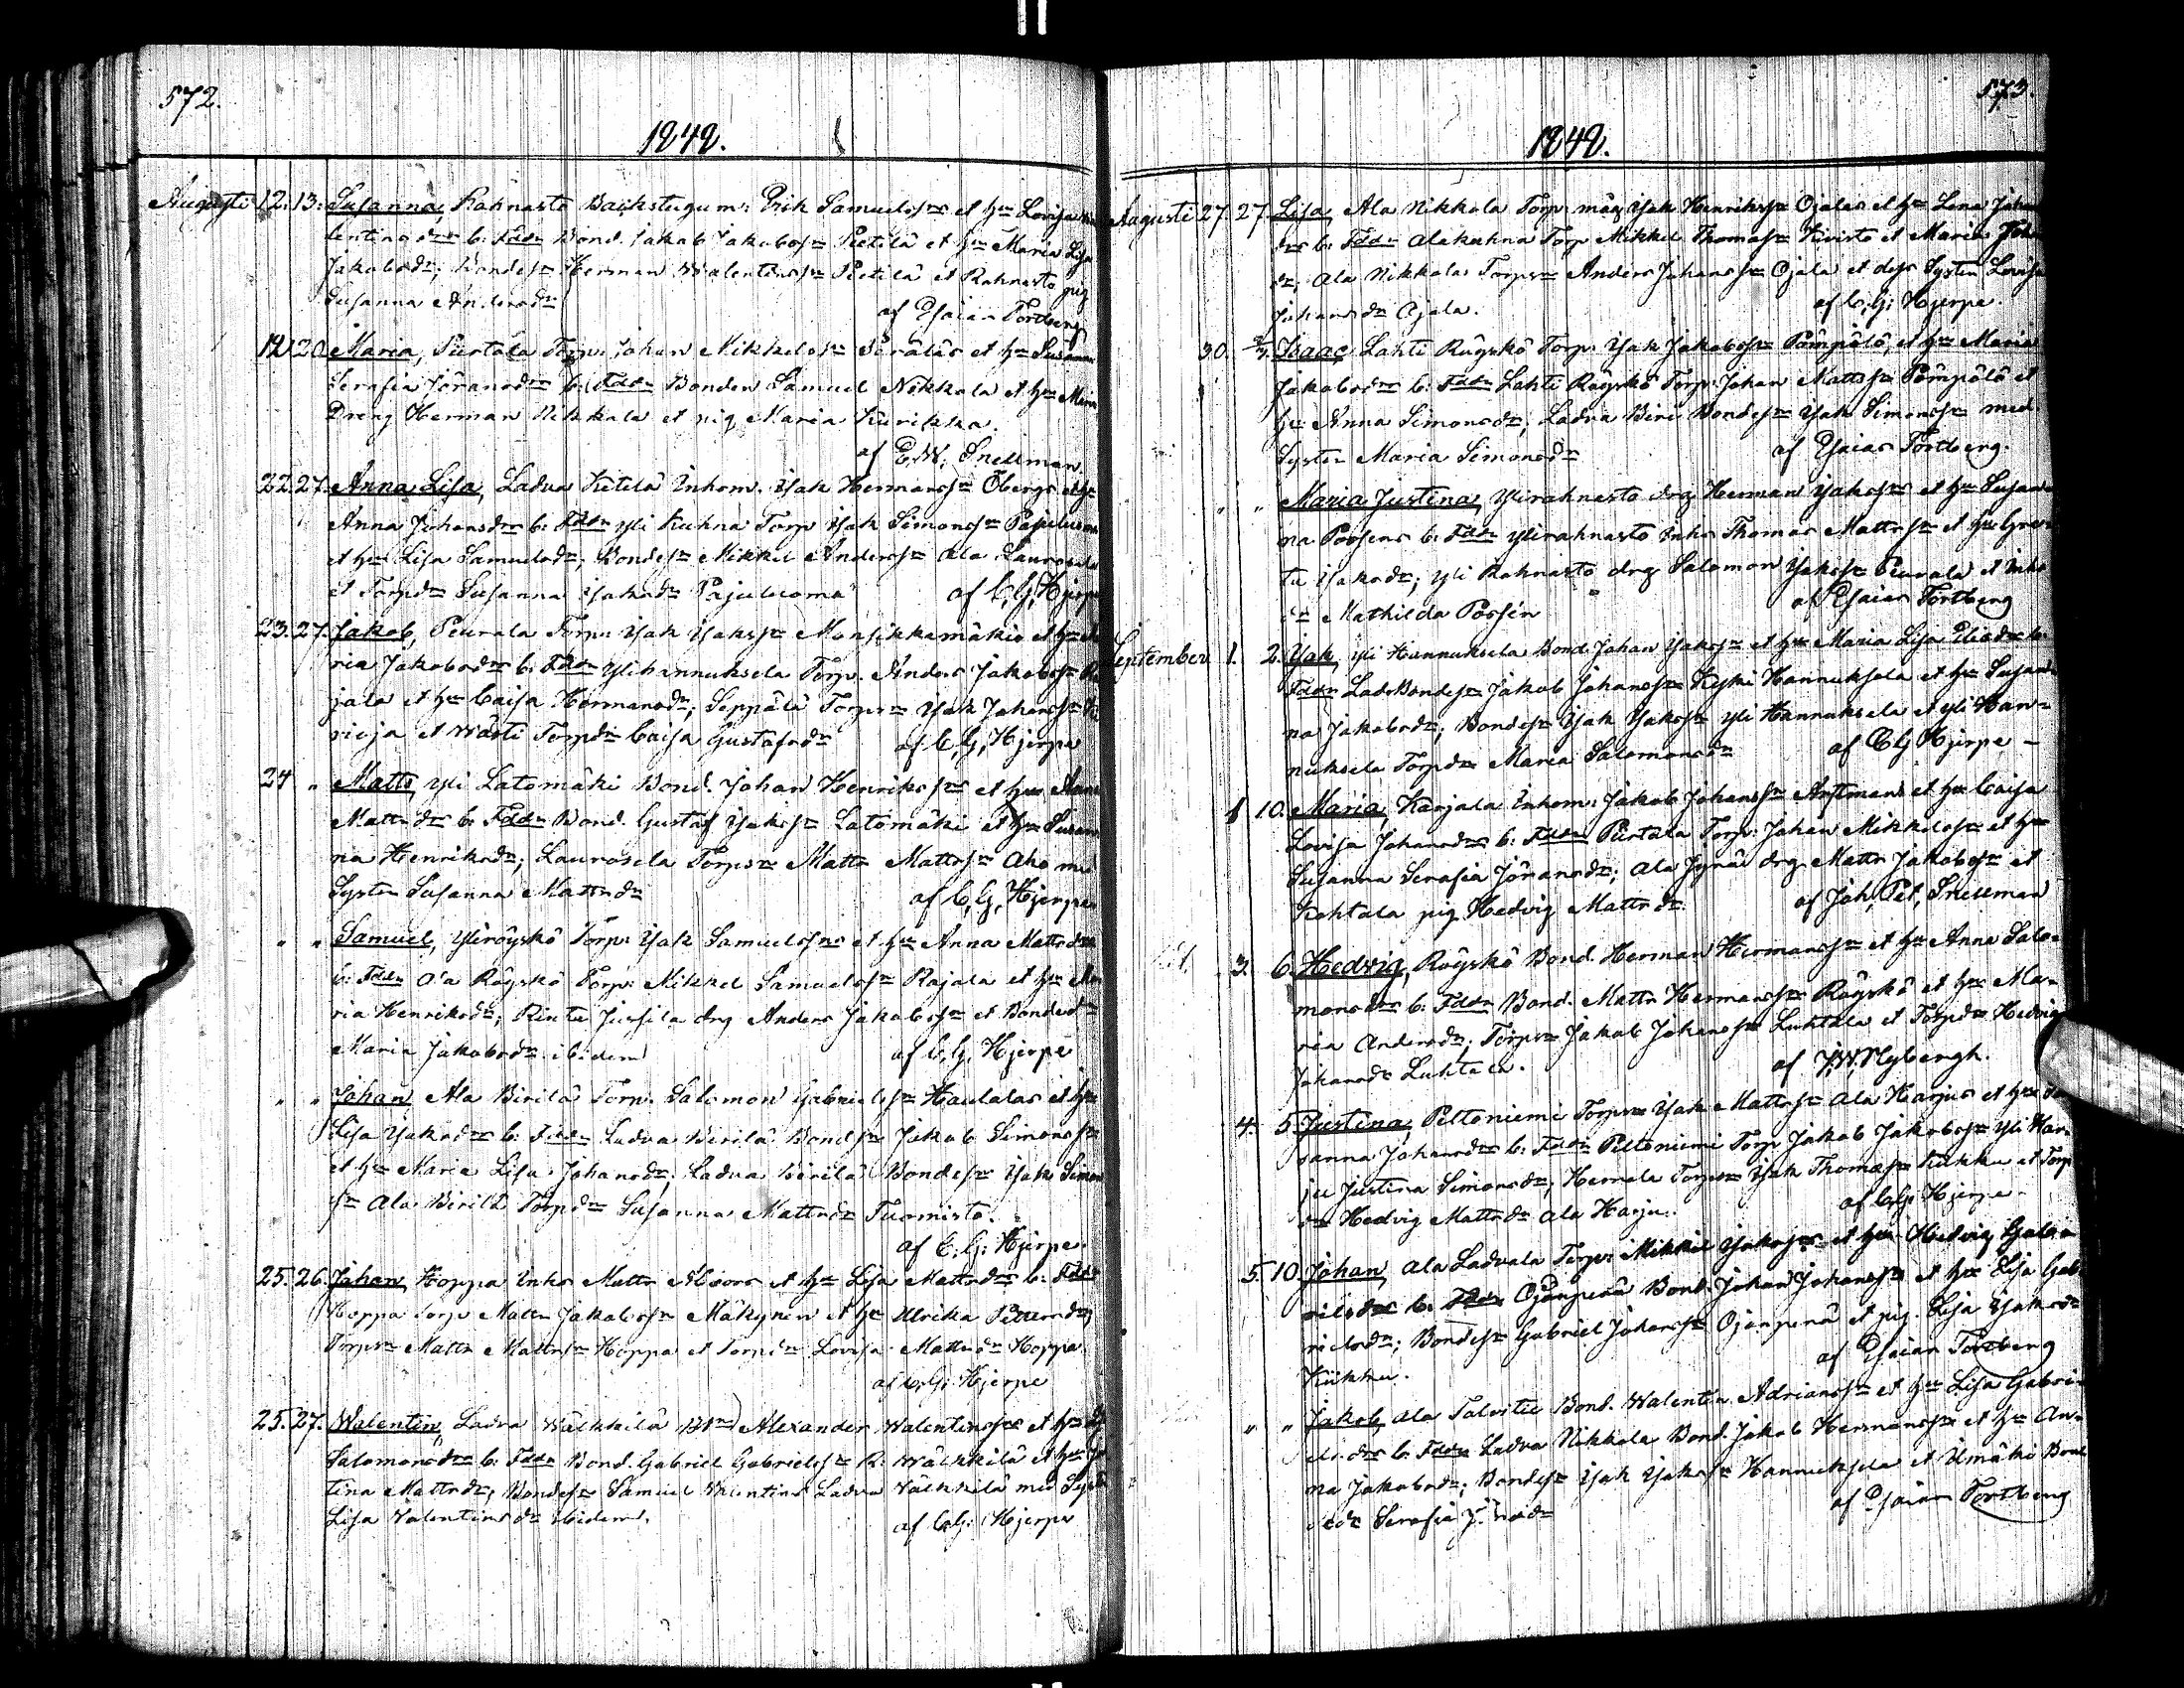 572.
1848.
Augusti 12. 13. Susanna, Rahnasto Backstugum: Erik Samuelsns et hu Lovisa
lentinsdrs b: Fddr Bond. Jakob Jakobssn Pietilä et hu Maria Lisa
Jakobsdr; Bondesn Herman Walentinssn Pietilä et Rahnasto pig
Susanna Andersdr
af Esaias Fortberg
20. Maria, Piirtola Torp: Johan Mikkelssn et hu Susanna
Serafia Jöransdrs b: Fddr Bonden Samuel Nikkola et hu Maria
Dreng Herman Nikkola et pig Maria Kurikka.
af E.W. Snellman
22. 27. Anna Lisa, Ladva Ketelä Inhom. Isak Hermanssn Öbergs et hu
Anna Johansdrs b: Fddr Yli Kuhna Torp Isak Simonssn Pajuluoma
et hu Lisa Samuelsdr; Bondesn Mikkel Anderssn Ala Laurosela
et Torpdr Susanna Isaksdr Pajuluoma af C.G. Hjerpe
23. 27. Jakob, Peurala Torp: Isak Isakssn Mansikkamäkis et hu Ma
ria Jakobsdrs b: Fddr Ylihannuksela Torp. Anders Jakobssn
jala et hu Caisa Hermansdr; Seppälä Torpsn Isak Johanssn
rioja et Wästi Torpdr Caisa Gustafsdr af C.G. Hjerpe
24 " Matts, Yli Latomäki Bond. Johan Henrikssns et hus
Mattsdrs b: Fddr Bond. Gustaf Isakssn Latomäki et hu Susan
na Henriksdr; Laurosela Torpsn Matts Mattssn Aho med
Syster Susanna Mattsdr af C.G. Hjerpe
" " Samuel, Yliröyskö Torp: Isak Samuelssns et hu Anna Mattsdrs
b: Fddr Ala Röyskö Torp: Mikkel Samuelssn Rajala et hu Ma
ria Henriksdr; Rinta Jussila drg Anders Jakobssn et Bondedr
Maria Jakobsdr ibidem af C.G. Hjerpe
" " Johan, Ala Birilä Torp. Salomon Gabrielssn Hautalas et hu
Lisa Isaksdrs b: Fddr Ladva Birilä Bondsn Jakob Simonssn
et hu Maria Lisa Johansdr; Ladva Birilä Bondesn Isak Simons
sn Ala Birilä Torpdr Susanna Mattsdr Tuomisto.
af C.G. Hjerpe.
25. 26. Johan, Hoppa Inhs Matts et hu Lisa Mattsdrs b: Fddr
Hoppa Torp Matts Jakobssn Mäkynen et hu Ulrika Pettersdr;
Torpsn Matts Mattssn Hoppa et Torpdr Lovisa Mattsdr Hoppa
af C.G. Hjerpe
25. 27. Walentin, Ladva Wälkkilä Alexander Walentinssns et hu
Salomonsdrs b: Fddr Bond. Gabriel Gabrielssn R: Wälkkilä et hu Jus
tina Mattsdr; Bondesn Samuel Walentins Ladva Wälkkilä med Syster
Lisa Walentinsdr ibidem. af C.G. Hjerpe
573.
1848.
Augusti 27. 27. Lisa, Ala Nikkola Torp: Isak Henrikssn Ojalas et hu Lena Johan
drs b: Fddr Alakuhna Torp Mikkel Thomassn Kivisto et Maria
dr; Ala Nikkola Torpsn Anders Johanssn Ojala et dess Syster Lovisa
Johansdr Ojala. af C.G. Hjerpe.
30. Isaac, Lahti Röyskö Torp: Isak Jakobssn Pömpölö, et hu Maria
Jakobsdrs b: Fddr Lahti Röyskö Torp: Johan Mattssn Pömpölö et
hu Anna Simonsdr; Ladva Biri Bondesn Isak Simonssn med
Syster Maria Simonsdr af Esaias Fortberg.
" " Maria Justina, Ylirahnasto drg Herman Isakssns et hu Susan
na Possens b: Fddr Ylirahnasto Inhs Thomas Mattssn et hu Gre
ta Isaksdr; Yli Rahnasto drg Salomon Isakssn Peurala et Inhs
dr Mathilda Possén af Esaias Fortberg
September 1. 2. Isak, Yli Hannuksela Bond: Johan Isakssn et hu Maria Lisa Eliedrs b:
Fddr LadsBondesn Jakob Johanssn Keski Hannuksela et hu Susan
na Jakobsdr; Bondesn Isak Isakssn Yli Hannuksela et Yli Han-
nuksela Torpdr Maria Salomonsdr af C.G. Hjerpe -
10. Maria, Karjala Inhom: Jakob Johanssn et hu Caisa
Lovisa Johansdrs b: Fddr Piirtola Torp: Johan Mikkelssn et hu
Susanna Serafia Jöransdr; Ala Jyrä drg Matts Jakobssn et
Kohtala pig Hedvig Mattsdr. af Joh. Pet. Snellman
3. 6. Hedvig, Röyskö Bond. Herman Hermanssn et hu Anna Salo-
monsdrs b: Fddr Bond. Matts Hermanssn Röyskö et hu Ma-
ria Andersdr; Torpsn Jakob Johanssn Luhtala et Torpdr Hedvig
Johansdr Luhtala. af J.W. Nybergh.
4. 5 Justina, Peltoniemi Torpsn Isak Mattssn Ala Harjus et hu Su
sanna Johansdrs b: Fddr Peltoniemi Torp Jakob Jakobssn Yli Har-
ju Justina Simonsdr; Herrala Torpsn Isak Thomassn Kukku et Torp
dr Hedvig Mattsdr Ala Harju. af C.G. Hjerpe.
5. 10 Johan, Ala Ladvala Torp: Mikkel Isakssns et hu Hedvig Gab-
rielsdrs b: Fddr Ojanperä Bond. Johan Johanssn et hu Lisa Gab
rielsdr; Bondesn Gabriel Johanssn Ojanperä et pig. Lisa Isaksdr
Kukku. af Esaias Fortberg
" " Jakob, Ala Talvitie Bond. Walentin Adrianssn et hu Lisa Gabri-
elsdrs b: Fddr Ladva Nikkola Bond. Jakob Hermanssn et hu An-
na Jakobsdr; Bondesn Isak Isakssn Hannuksela et Bond
dr Serafia af Esaias Fortberg